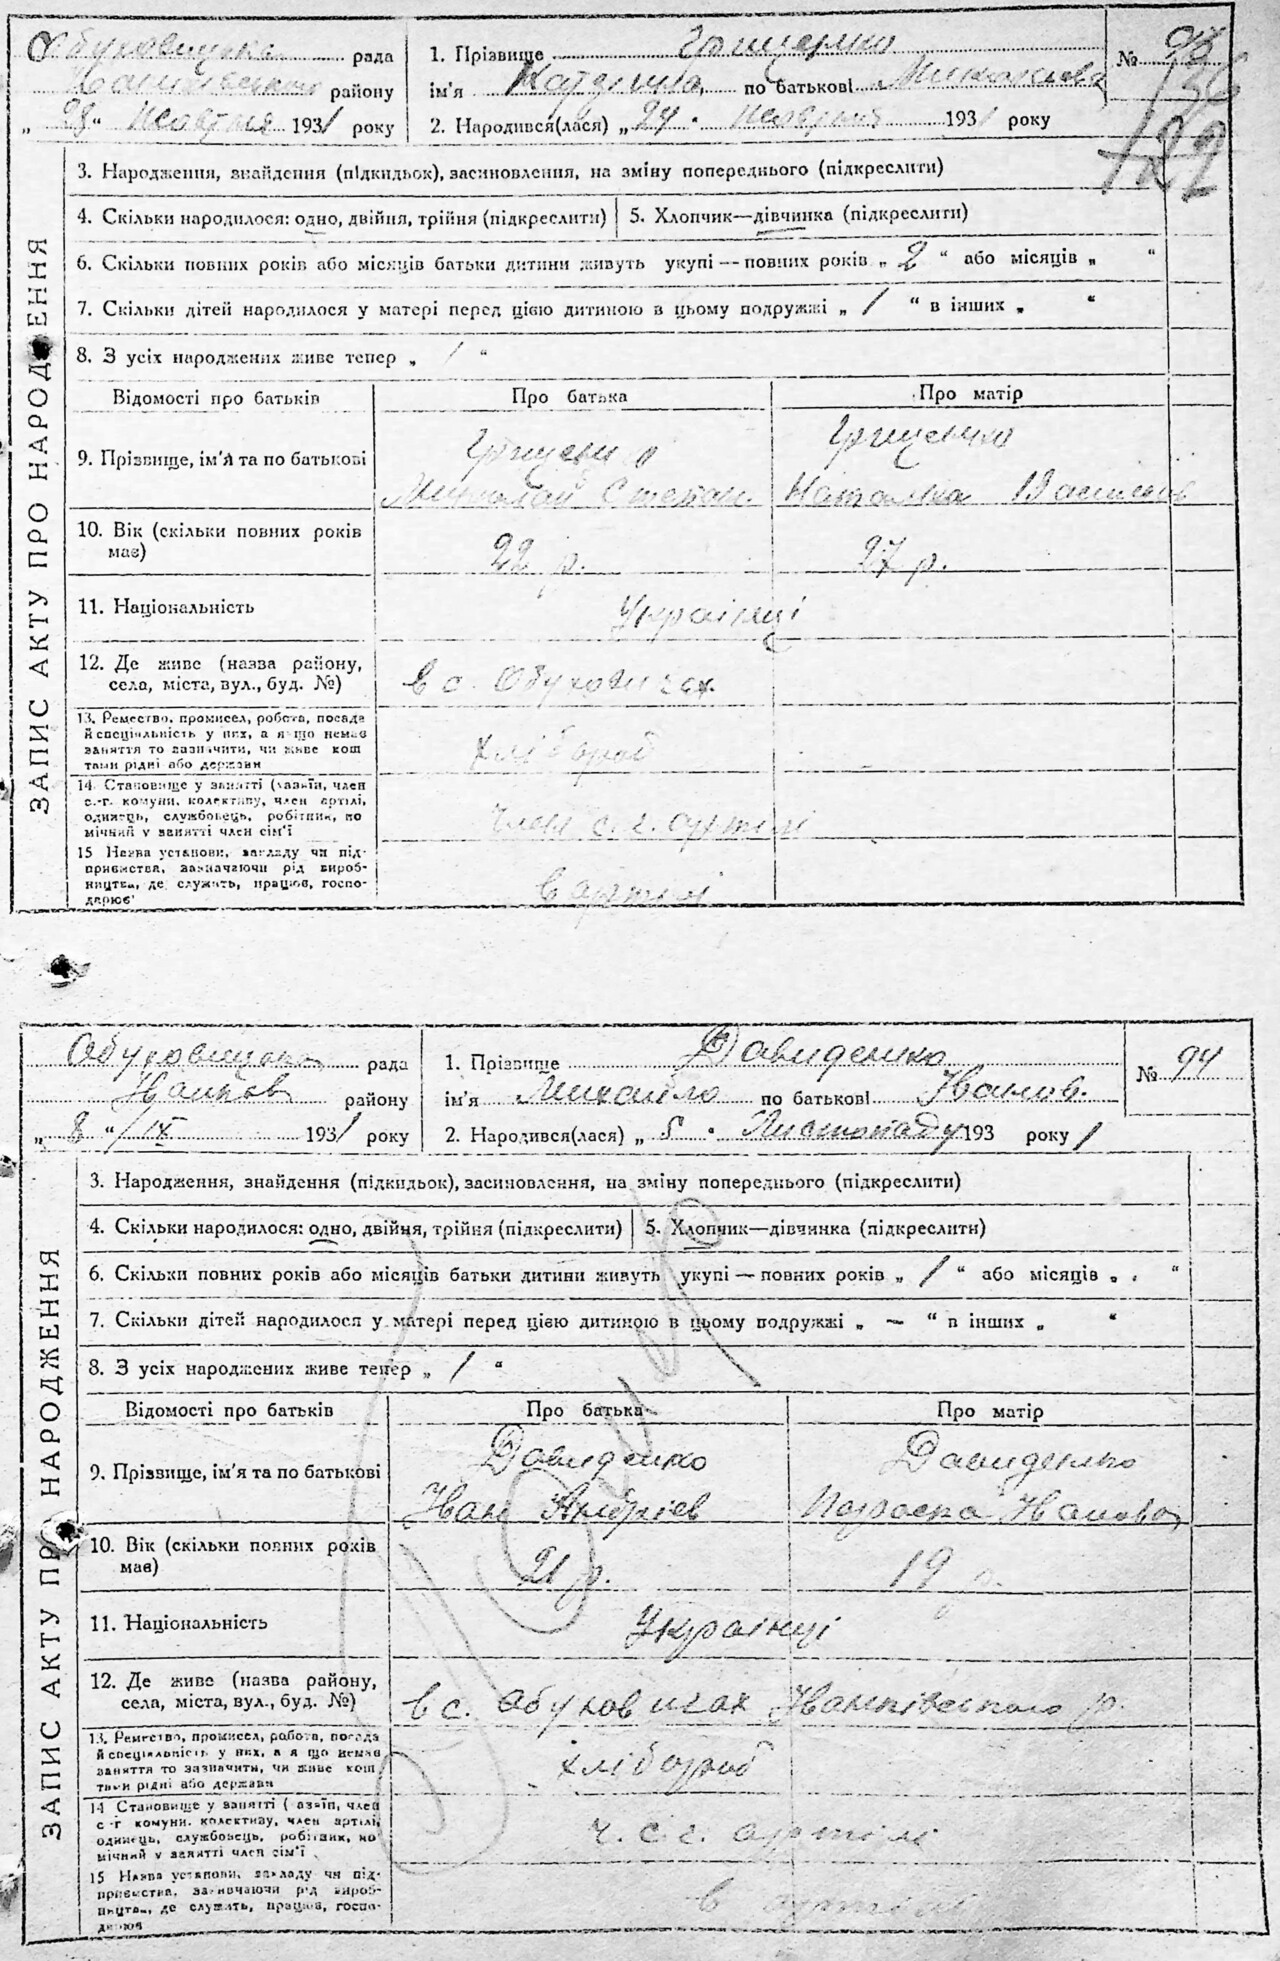 Обуховицька рада
1. Прізвище Грищенко
№ 93
Іванківського району
ім'я Катерина, по батькові Миколаєва
136
„ 28 “ Жовтня 1931 року
2. Народився(лася) „ 24 “ Жовтня 1931 року
122
3. Народження, знайдення (підкидьок), засиновлення, на зміну попереднього (підкреслити)
4. Скільки народилося: одно, двійня, трійня (підкреслити)
5. Хлопчик—дівчинка (підкреслити)
6. Скільки повних років або місяців батьки дитини живуть укупі — повних років „ 2 “ або місяців „ “
7. Скільки дітей народилося у матері перед цією дитиною в цьому подружжі „ 1 “ в інших „ “
8. З усіх народжених живе тепер „ 1 “
ЗАПИС АКТУ ПРО НАРОДЖЕННЯ
Відомості про батьків
Про батька
Про матір
9. Прізвище, ім'я та по батькові
Грищенко
Микола Степан.
Грищенко
Наталка Василєв
10. Вік (скільки повних років має)
22 р.
27 р.
11. Національність
Українці
12. Де живе (назва району,
села, міста, вул., буд. №)
в с. Обуховичах
13. Ремество, промисел, робота, посада
й спеціяльність у них, а якщо немає
заняття то зазначити, чи живе кош
тами рідні або держави
хлібороб
14. Становище у занятті (хазяїн, член
с.-г. комуни, колективу, член артілі,
одинець, службовець, робітник, по
мічний у занятті член сім'ї
член с. г. артілі
15 Назва установи, закладу чи під-
приємства, зазначаючи рід вироб-
ництва, де служить, працює, госпо-
дарює
в артілі
Обуховицька рада
1. Прізвище Давиденко
№ 94
Іванков району
ім'я Михайло по батькові Іванов.
„ 8 “ /IX 1931 року
2. Народився(лася) „ 5 “ Листопаду 193 року 1
3. Народження, знайдення (підкидьок), засиновлення, на зміну попереднього (підкреслити)
4. Скільки народилося: одно, двійня, трійня (підкреслити)
5. Хлопчик—дівчинка (підкреслити)
6. Скільки повних років або місяців батьки дитини живуть укупі — повних років „ 1 “ або місяців „ “
7. Скільки дітей народилося у матері перед цією дитиною в цьому подружжі „ — “ в інших „ “
8. З усіх народжених живе тепер „ 1 “
ЗАПИС АКТУ ПРО НАРОДЖЕННЯ
Відомості про батьків
Про батька
Про матір
9. Прізвище, ім'я та по батькові
Давиденко
Іван Андріев
Давиденко
Параска Іванова
10. Вік (скільки повних років
має)
21 р.
19 р.
11. Національність
Українці
12. Де живе (назва району,
села, міста, вул., буд. №)
в с. Обуховичах Іванківського р.
13. Ремество, промисел, робота, посада
й спеціяльність у них, а якщо немає
заняття то зазначити, чи живе кош
тами рідні або держави
хлібороб
14 Становище у занятті (хазяїн, член
с-г комуни, колективу, член артілі,
одинець, службовець, робітник, по
мічний у занятті член сім'ї
ч. с. г. артілі
15 Назва установи, закладу чи під-
приємства, зазначаючи рід вироб-
ництва, де служить, працює, госпо-
дарює
в артілі